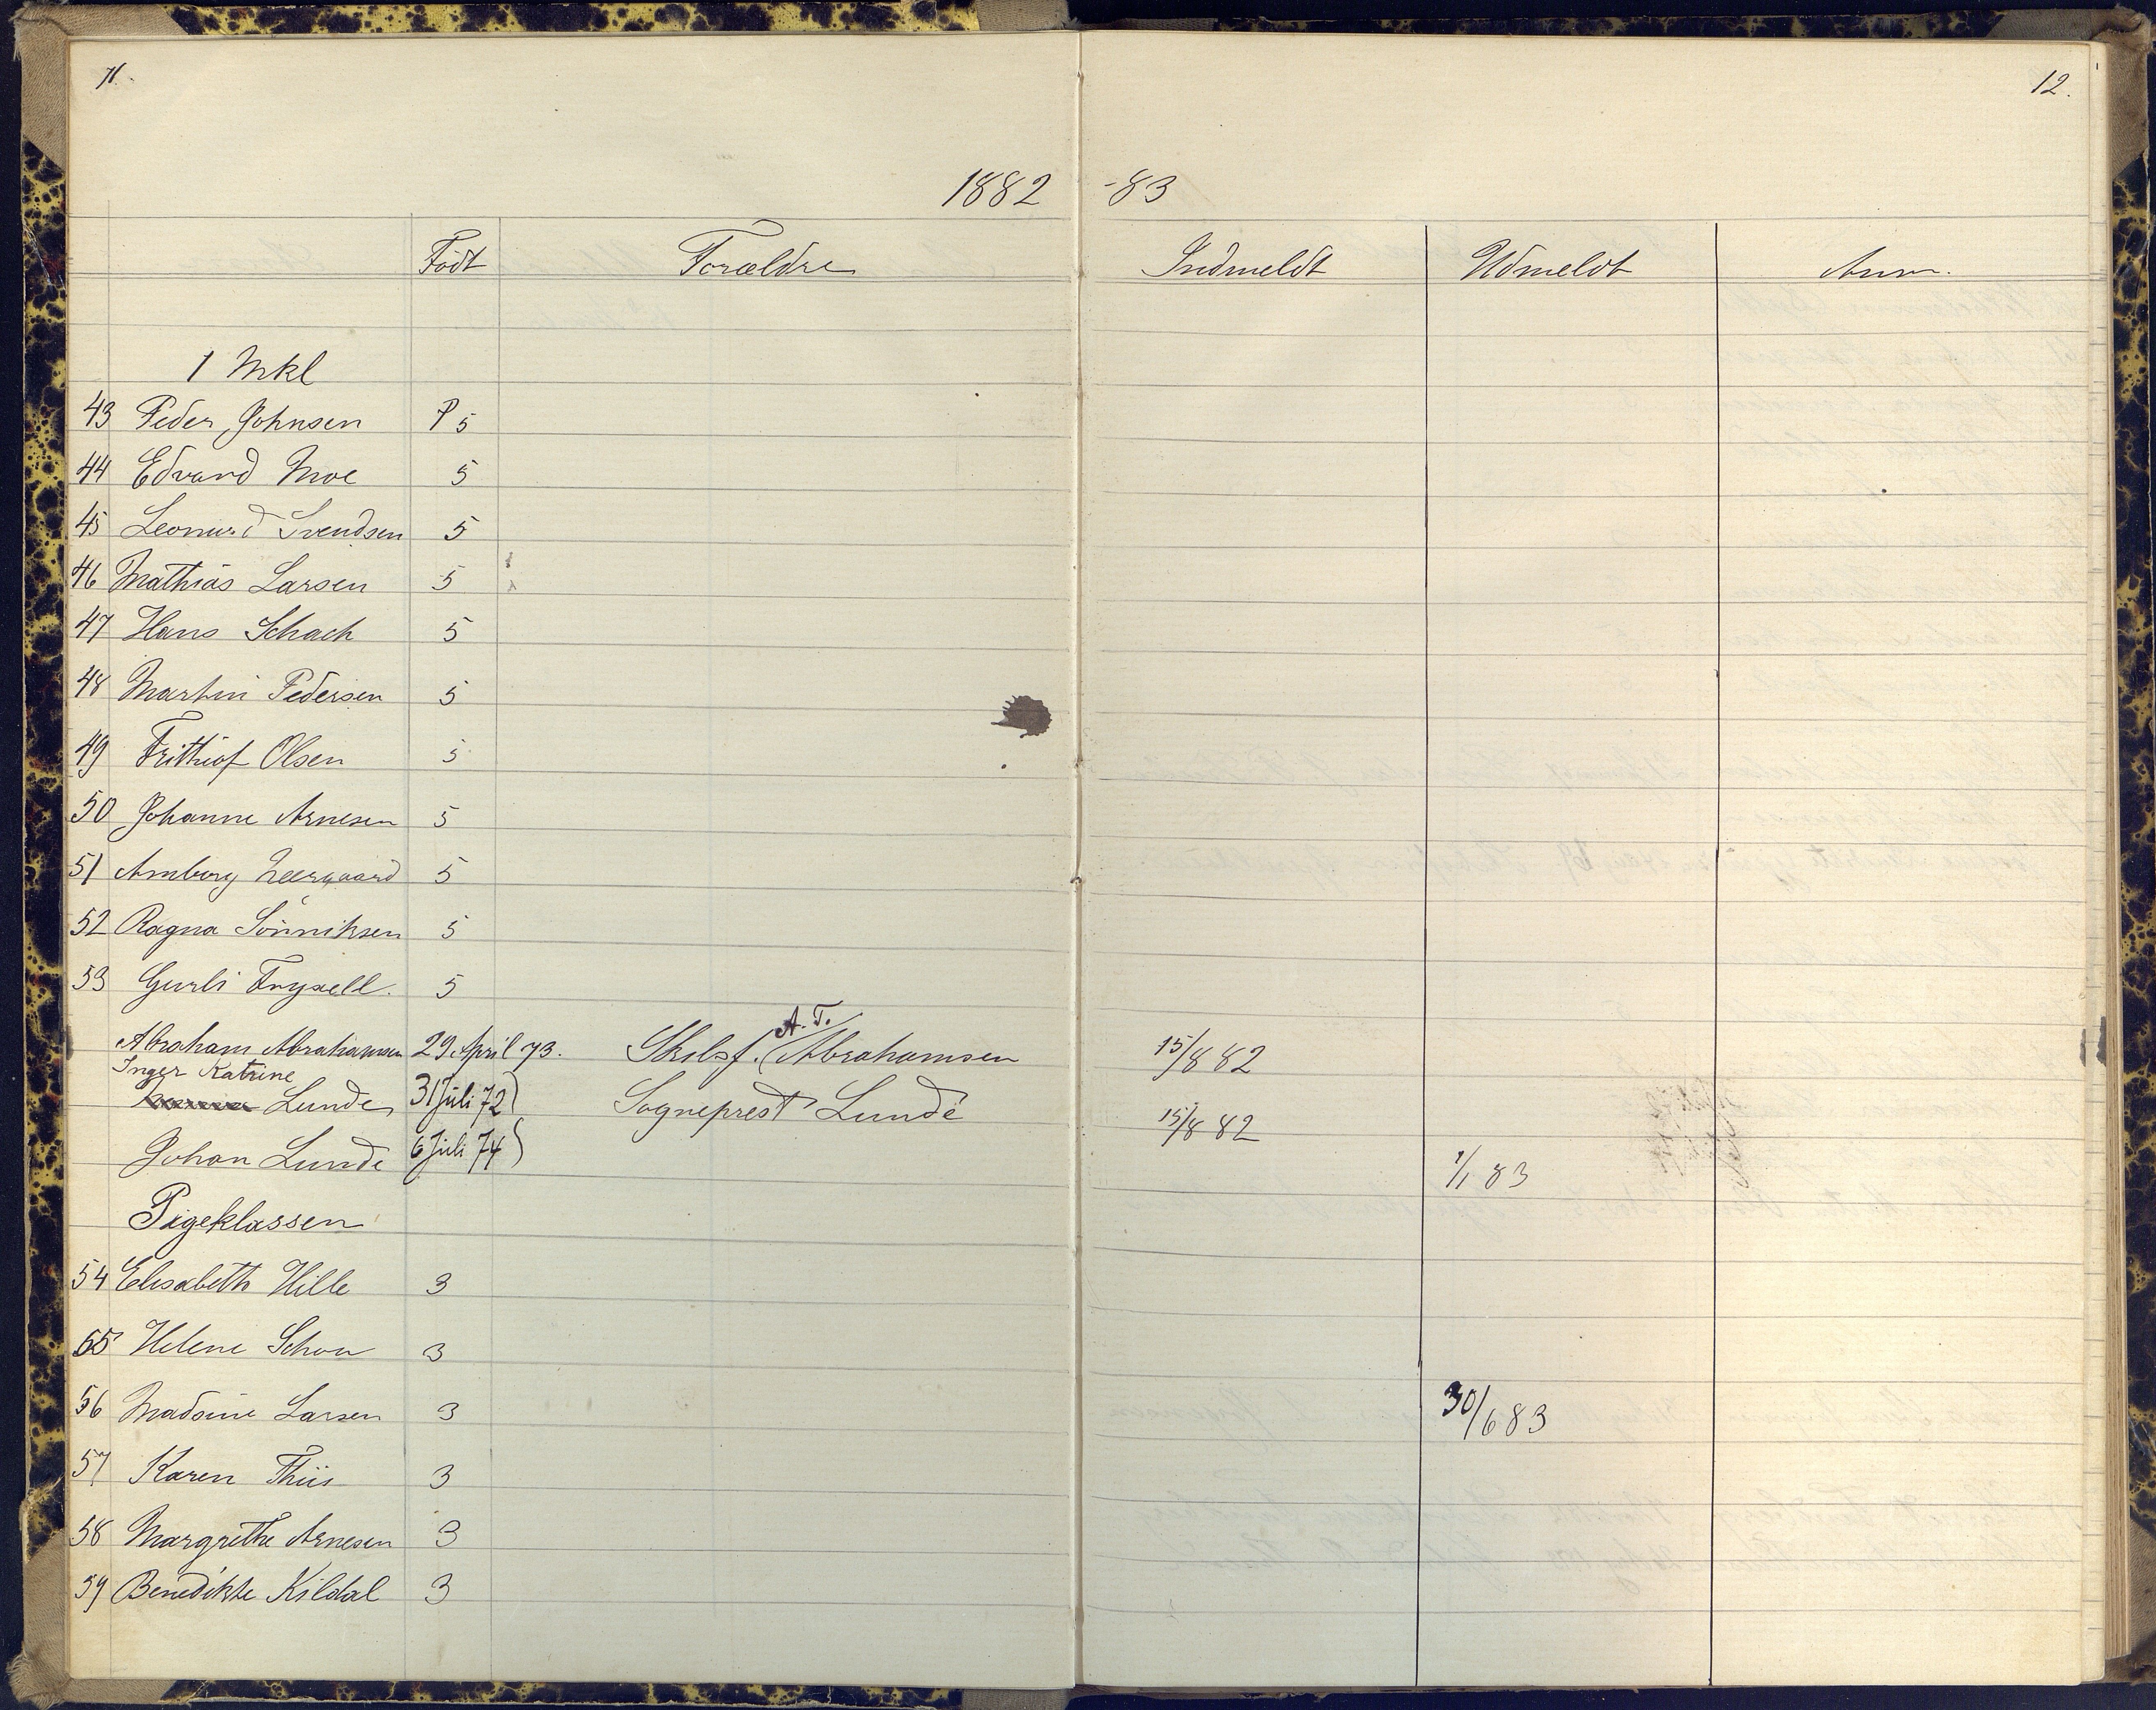 11.
12.
1882 -83
Født Forældre Indmeldt Udmeldt Anm.
1 Mkl
43 Peder Johnsen P 5
44 Edvard Moe 5
45 Leonard Svendsen 5
46 Mathias Larsen 5
47 Hans Schach 5
48 Martin Pedersen 5
49 Frithiof Olsen 5
50 Johanne Arnesen 5
51 Amborg Neergaard 5
52 Ragna Sönniksen 5
53 Gurli Fryxell. 5
Abraham Abrahamsen 29 April 73. Skibsf. A. T. Abrahamsen 15/8 82
Inger Katrine
Lunde 31 Juli 72) Sogneprest Lunde 15/8 82
Johan Lunde 6 Juli 74) 1/1 83
Pigeklassen
54 Elisabeth Hille 3
55 Helene Schou 3
56 Madsine Larsen 3 30/6 83
57 Karen Thiis 3
58 Margrethe Arnesen 3
59 Benedikte Kildal 3